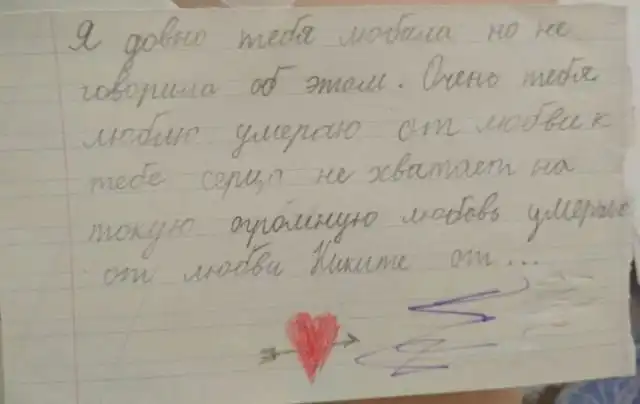 Я довно тебя любила но не
говорила об этом. Очень тебя
люблю умераю от любви к
тебе серца не хватает на
токую огромную любовь умераю
от любви Никите от...